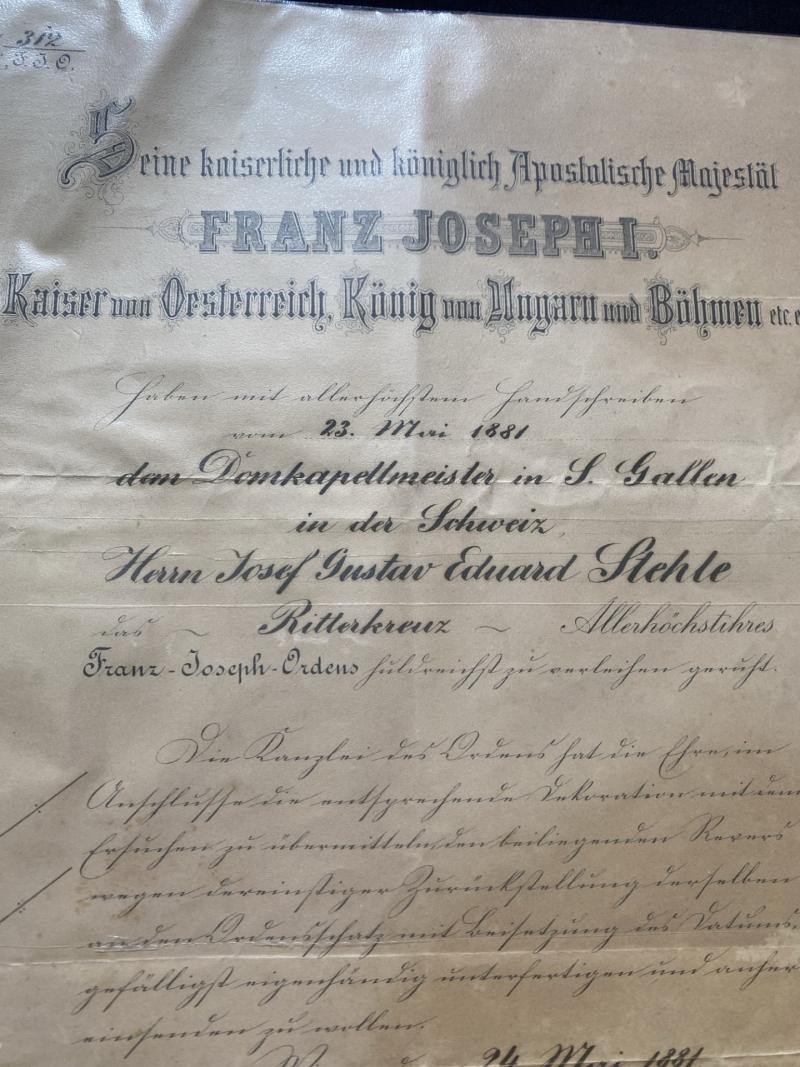 312
F. J. O.
Seine kaiserliche und königlich Apostolische Majestät
FRANZ JOSEPH I.
Kaiser von Oesterreich, König von Ungarn und Böhmen etc. e
haben mit allerhöchstem Handschreiben
vom 23. Mai 1881
dem Domkapellmeister in S. Gallen
in der Schweiz,
Herrn Josef Gustav Eduard Stehle
das ~ Ritterkreuz ~ Allerhöchstihres
Franz-Joseph-Ordens huldreichst zu verleihen geruht.
Die Kanzlei des Ordens hat die Ehre, im
Anschlusse die entsprechende Dekoration mit dem
Ersuchen zu übermitteln, den beiliegenden Revers
wegen dereinstiger Zurückstellung derselben
an den Ordensschatz mit Beisetzung des Datums,
gefälligst eigenhändig unterfertigen und anher
einsenden zu wollen.
24. Mai 1881